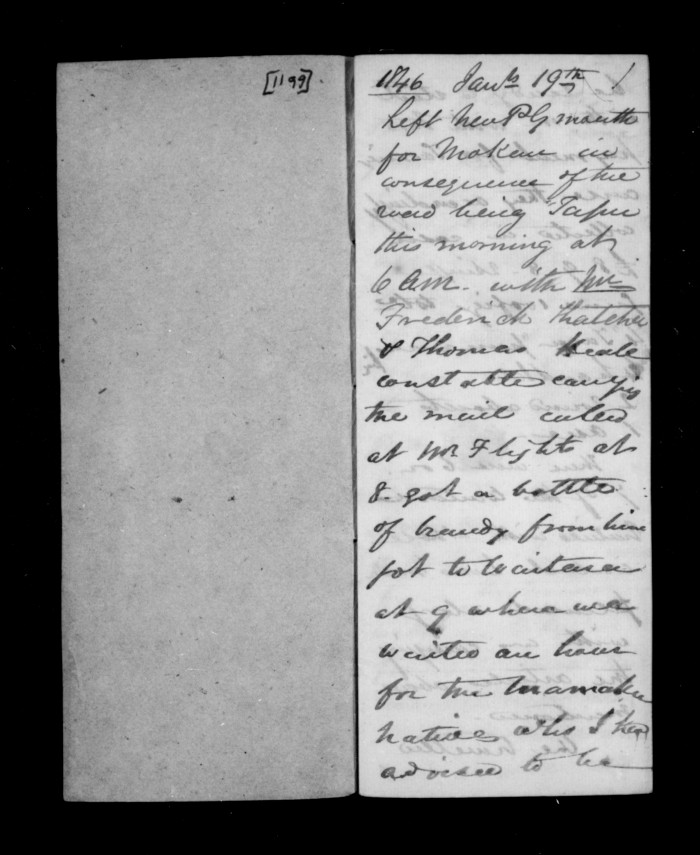 [1199].
1846 Jany 19th /
Left New Plymouth
for Mokau in
consequence of the
road being Tapu
this morning at
6 Am. with Mr
Frederick Thatcher
& Thomas Heale
constable carryig
the mail called
at Mr Flights at
8. got a bottle
of brandy from him
got to Waitera
at 9 where we
waited an hour
for the
natives who I had
advised to be